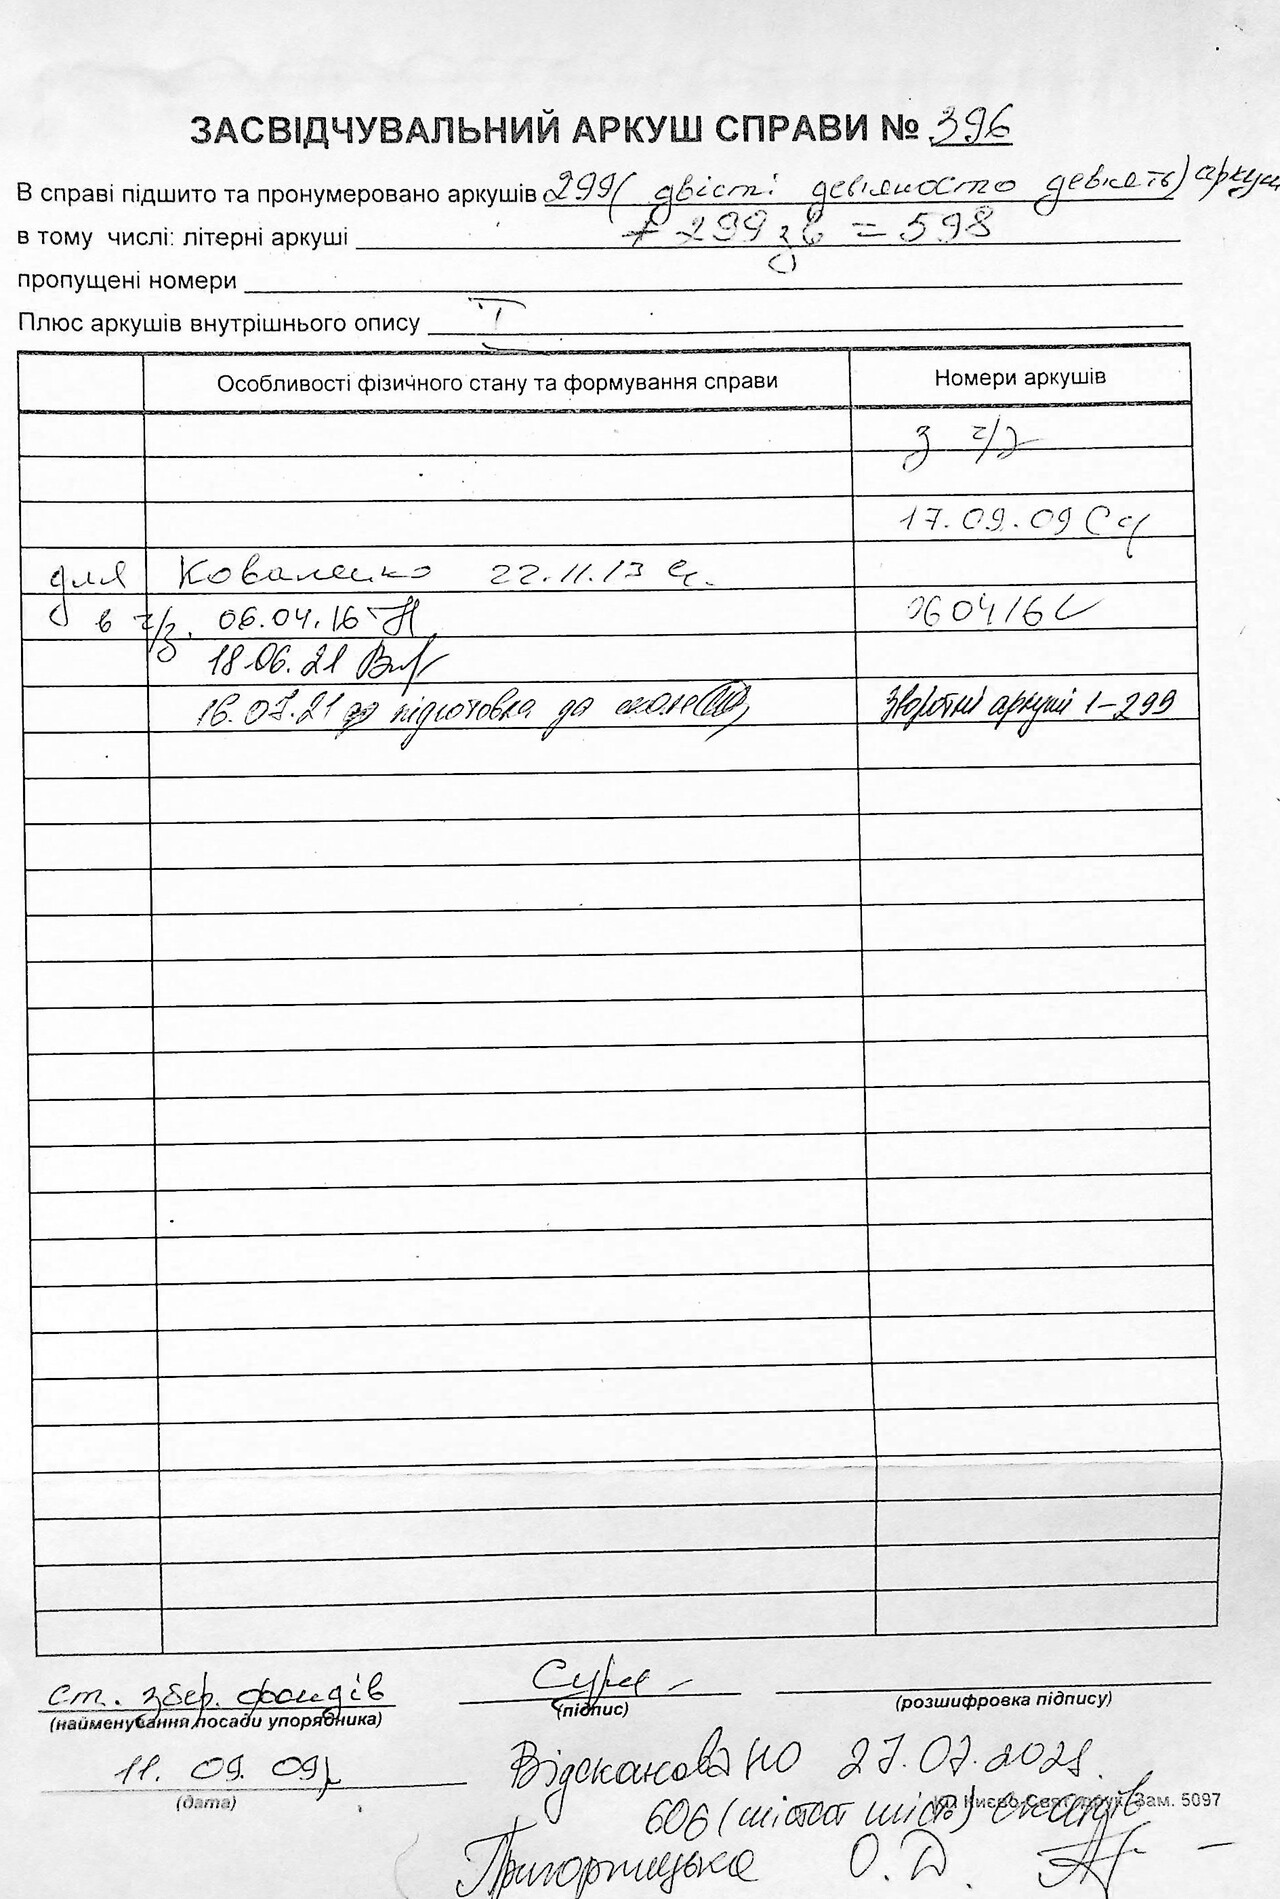 ЗАСВІДЧУВАЛЬНИЙ АРКУШ СПРАВИ № 396
В справі підшито та пронумеровано аркушів 299 (двісті девяносто девять) аркуш
в тому числі: літерні аркуші + 299 зв = 598
пропущені номери
Плюс аркушів внутрішнього опису I
Особливості фізичного стану та формування справи Номери аркушів
з ч/з
17.09.09
для Коваленко 22.11.13
в ч/з. 06.04.16 060416
18.06.21
16.07.21 підготовка до Зворотні аркуші 1-299
ст. збер. фондів
(найменування посади упорядника) (підпис) (розшифровка підпису)
11. 09. 09р
(дата)
Відскановано 27.07.2021.
КП Києво-Святодрук. Зам. 5097
606 (шістсот шість) сканів
Пригорницька О. Д.